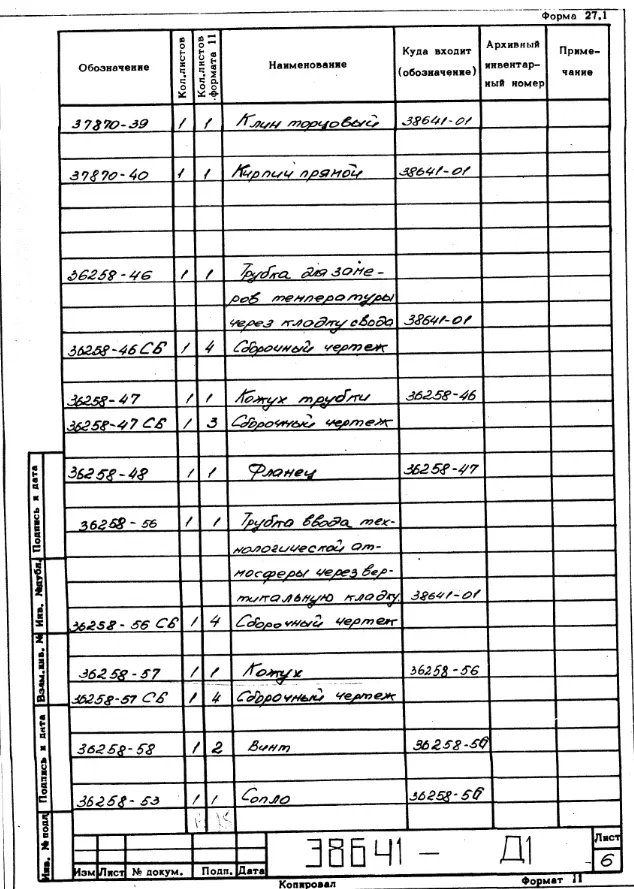 Форма 27.1
Обозначение Кол.листов Кол.листов формата 11 Наименование Куда входит (обозначение) Архивный инвентарный номер Примечание
37870-39 1 1 Клин торцовый 38641-01
37870-40 1 1 Кирпич прямой 38641-01
36258-46 1 1 Трубка для заме-
ров температуры
через кладку свода 38641-01
36258-46 СБ 1 4 Сборочный чертеж
36258-47 1 1 Кожух трубки 36258-46
36258-47 СБ 1 3 Сборочный чертеж
36258-48 1 1 Фланец 36258-47
36258-56 1 1 Трубка ввода тех-
нологической ат-
мосферы через вер-
тикальную кладку 38641-01
36258-56 СБ 1 4 Сборочный чертеж
36258-57 1 1 Кожух 36258-56
36258-57 СБ 1 4 Сборочный чертеж
36258-58 1 2 Винт
36258-53 1 1 Сопло
Подпись и дата
Инв. №дубл.
Взам.инв. №
Подпись и дата
Инв. №подл
Изм Лист № докум. Подп. Дата
38641 - Д1
Лист
6
Копировал Формат 11